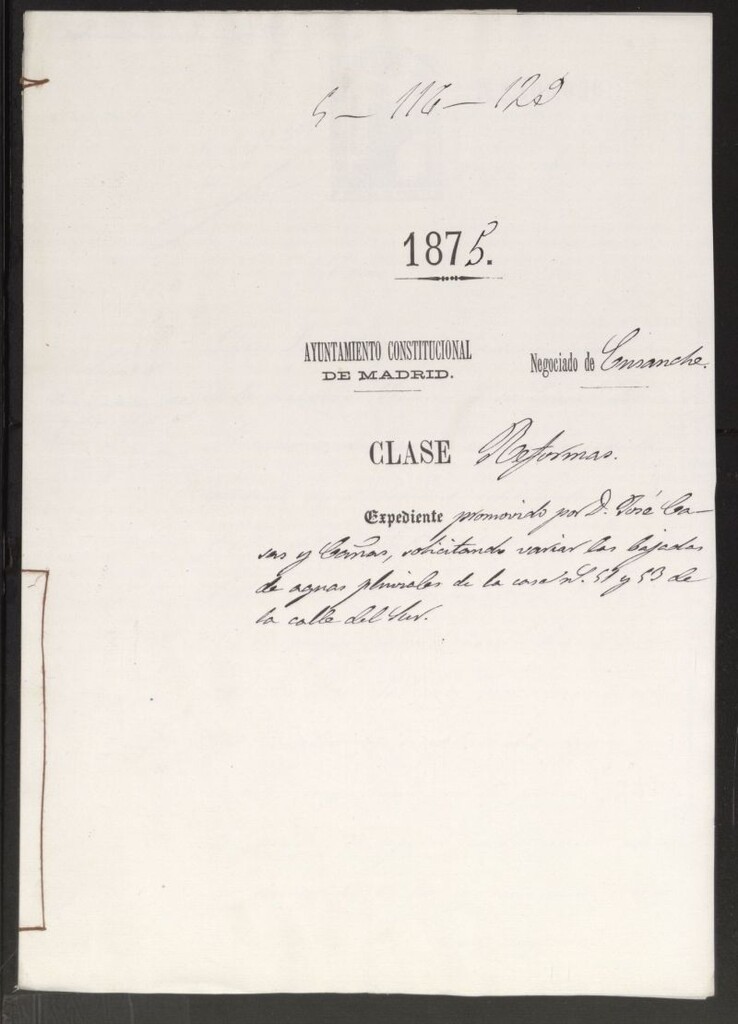 5 – 116 – 129
1875.
AYUNTAMIENTO CONSTITUCIONAL
DE MADRID.
Negociado de Ensanche.
CLASE Reformas.
Expediente promovido por D. José Ca-
sas y Cañas, solicitando variar las bajadas
de aguas pluviales de la casa n.º 51 y 53 de
la calle del Sur.